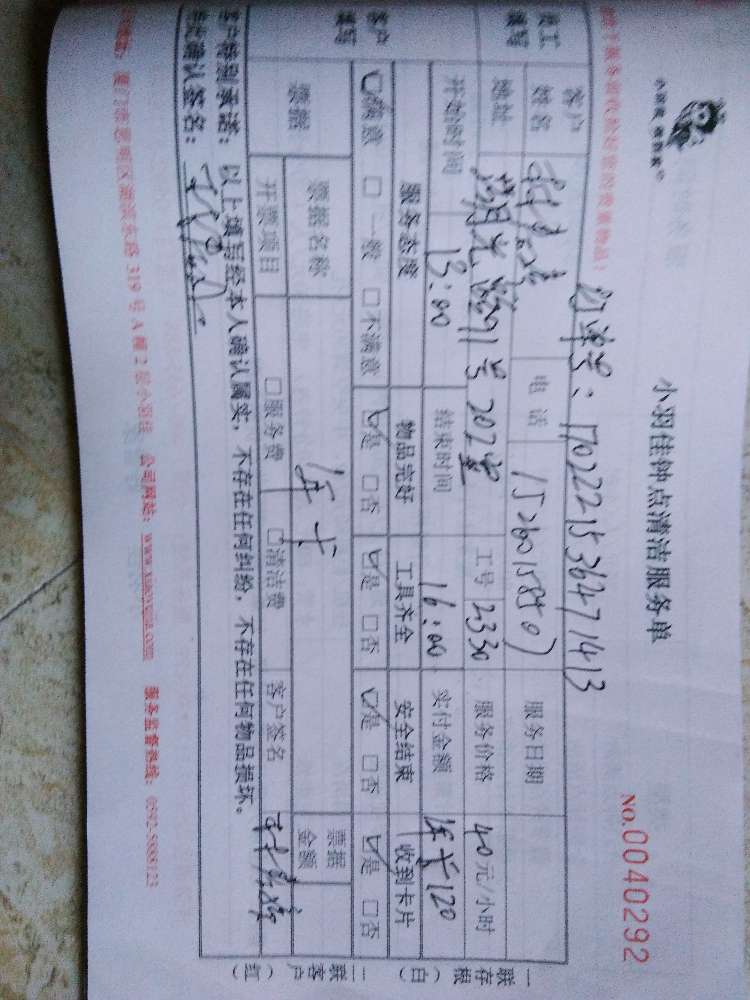 小羽佳 保洁家
小羽佳钟点清洁服务单
NO.0040292
订单号:17022215364271413
员工填写
客户姓名
电话
服务日期
地址 号202室
工号 2330
服务价格 40元/小时
开始时间 13:00
结束时间 16:00
实付金额 年卡120
客户填写
服务态度 物品完好 工具齐全 安全结束 收到卡片
☑满意 □一般 □不满意 ☑是 □否 ☑是 □否 ☑是 □否 ☑是 □否
票据
票据名称 年卡
票据金额
开票项目 □服务费 □清洁费 客户签名
客户特别承诺:以上填写经本人确认属实,不存在任何纠纷,不存在任何物品损坏。
客户确认签名:
厦门市思明区湖滨东路319号A幢2层小羽佳 公司网站:www.xiaoyujia.com 服务监督热线:0592-5088123
一联存根(白) 二联客户(红)